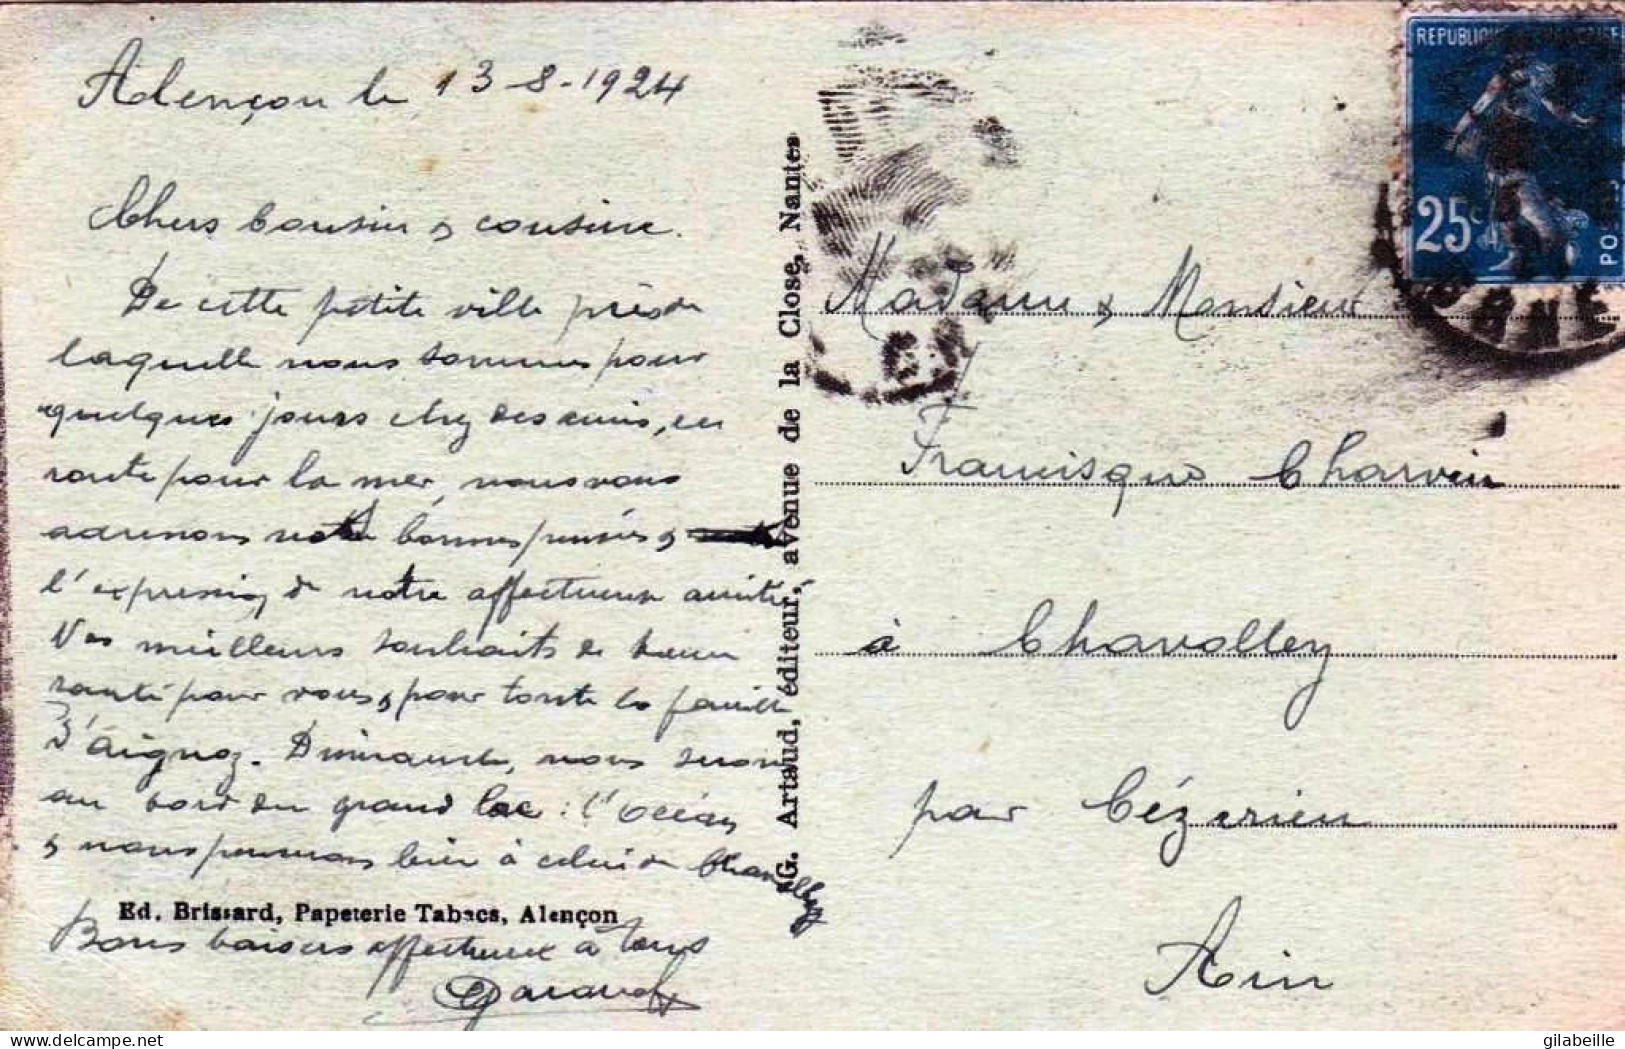 Alençon le 13-8-1924
Chers Cousin & cousine.
De cette petite ville près de
laquelle nous sommes pour
quelques jours chez des amis, en
route pour la mer, nous vous
adressons nos bonnes pensées &
l'expression de notre affectueuse amitié
Nos meilleurs souhaits de bonne
santé pour vous, & pour toute la famille
d'Aignoz. Dimanche, nous serons
au bord du grand lac : l'Océan
& nous penserons bien à celui de Chavolley
Ed. Brissard, Papeterie Tabacs, Alençon
Bons baisers affectueux à tous
G. Artaud, éditeur, avenue de la Close, Nantes
REPUBLIQUE FRANÇAISE
25c
POSTES
Madame & Monsieur
Francisque Charvin
à Chavolley
par Cézerieu
Ain
gilabeille